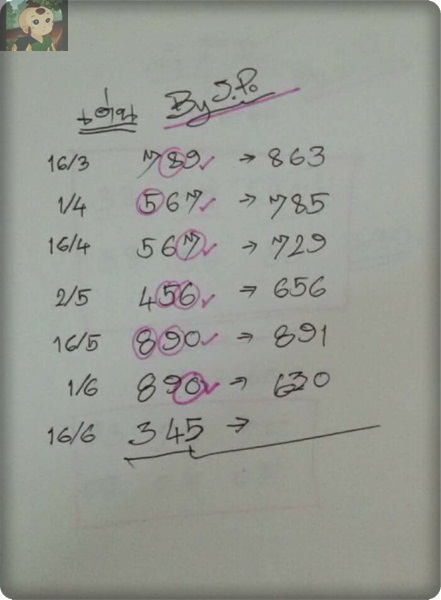 By J.Po
16/3 789 ✓ → 863
1/4 567 ✓ → 785
16/4 567 ✓ → 729
2/5 456 ✓ → 656
16/5 890 ✓ → 891
1/6 890 ✓ → 630
16/6 345 →